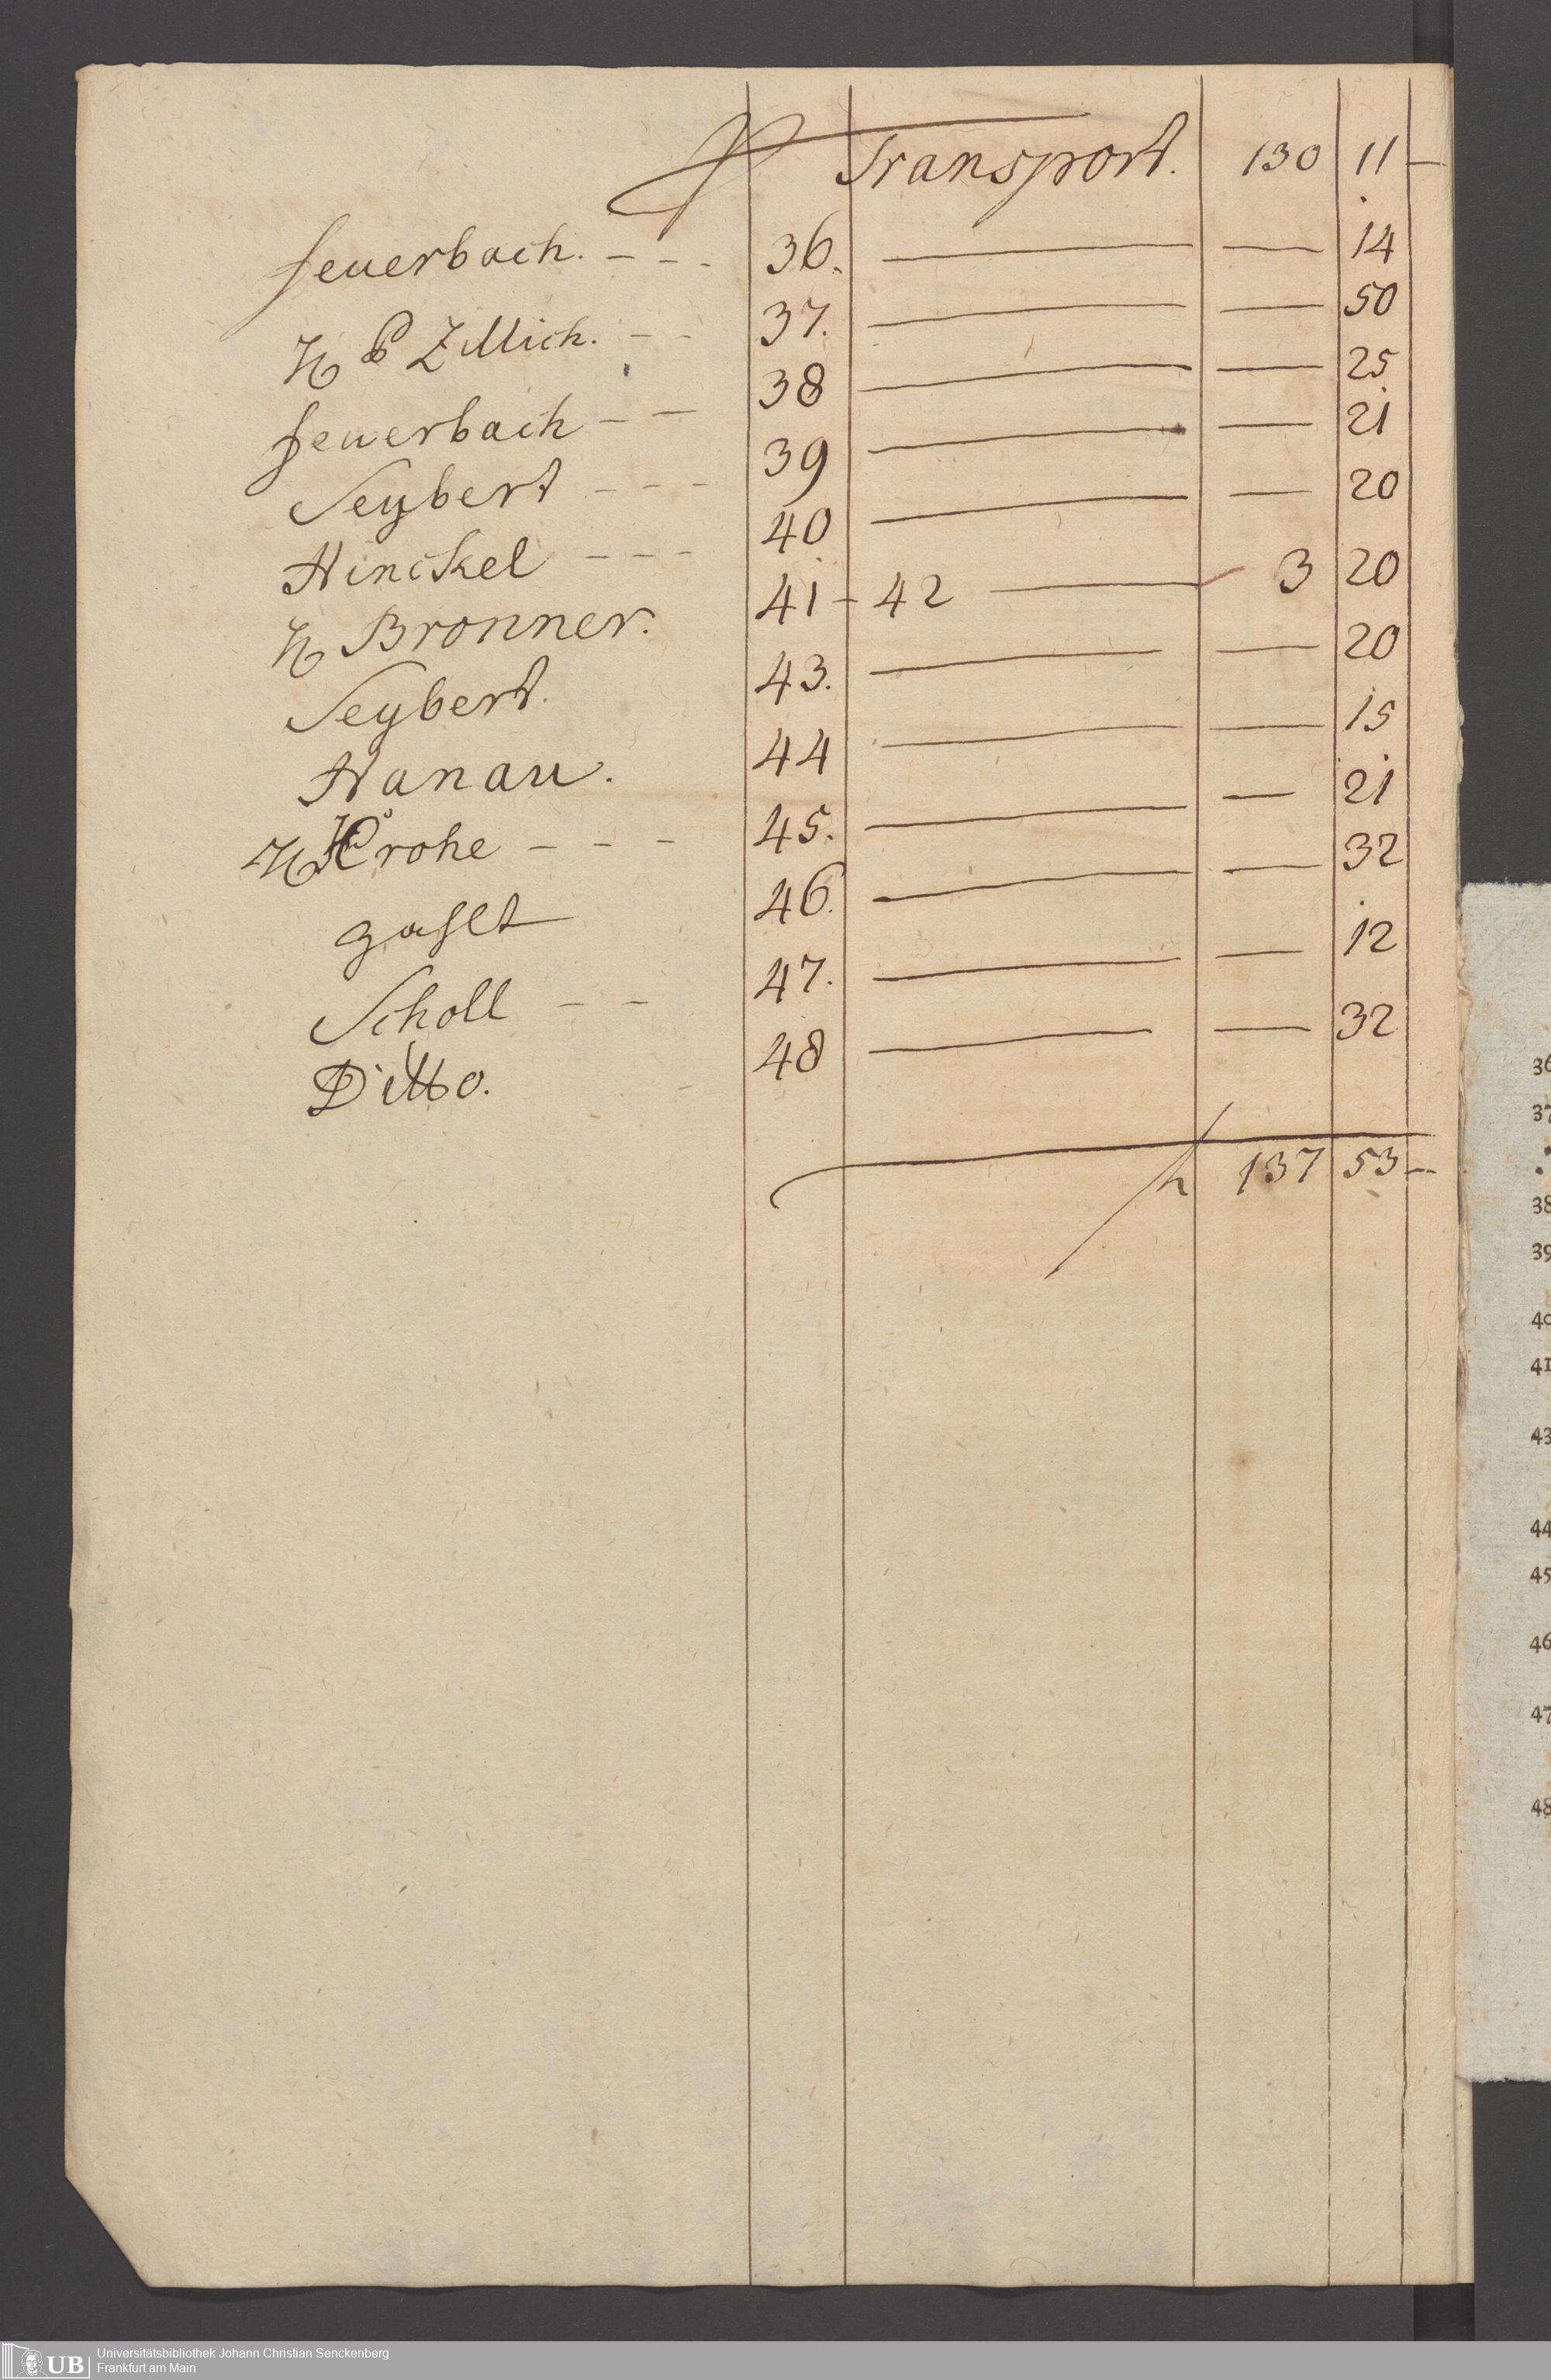 Transport. 130 11 —
feuerbach. - - - 36. — — 14
H P Zillich. - - 37. — — 50
feuerbach - - 38 — — 25
Seybert - - - 39 — — 21
Hinckel - - - 40 — — 20
H Bronner. 41 - 42 — 3 20
Seybert. 43. — — 20
Hanau. 44 — — 15
H Krohe - - - 45. — — 21
zahlt 46. — — 32
Scholl - - 47. — — 12
Ditto. 48 — — 32
137 53 —
36
37
38
39
40
41
43
44
45
46
47
48
UB
Universitätsbibliothek Johann Christian Senckenberg
Frankfurt am Main